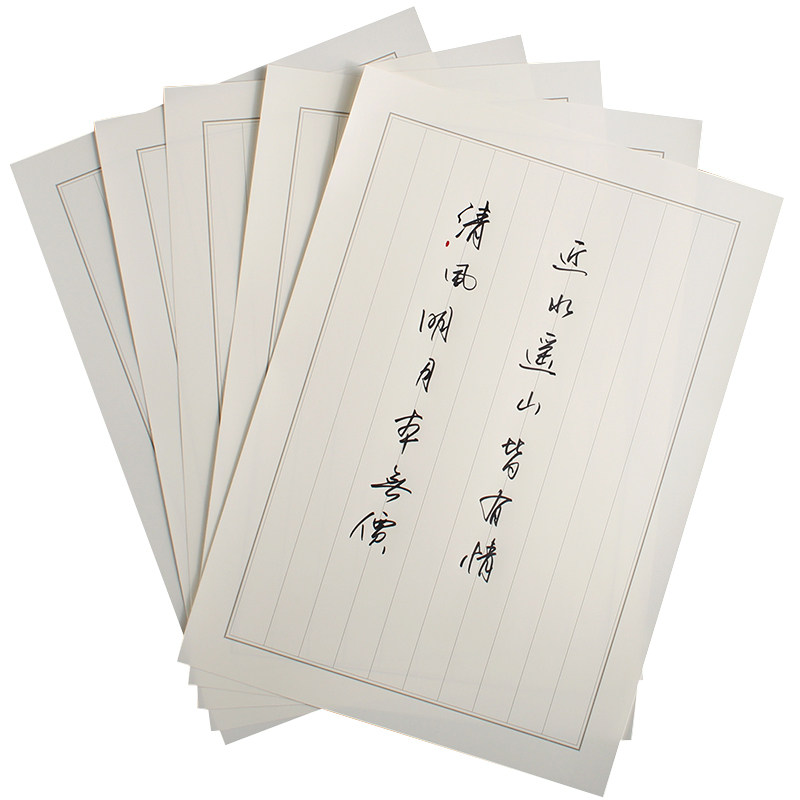 近水遥山皆有情
清风明月本無價